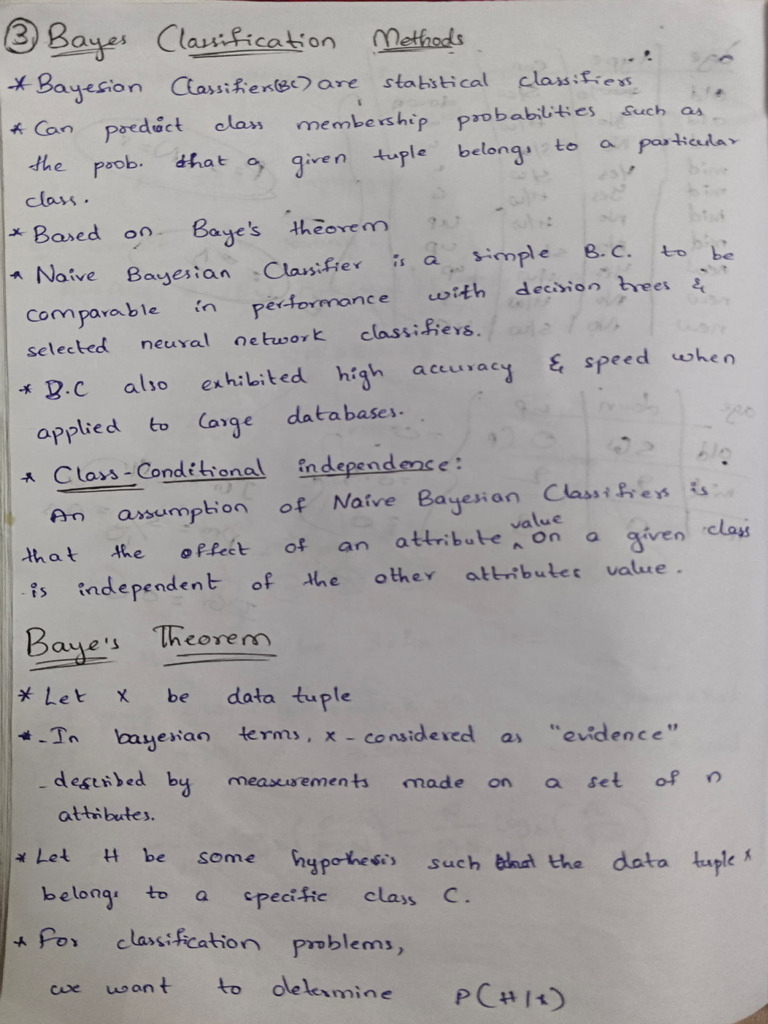 ③ Bayes Classification Methods
* Bayesian Classifiers(BC) are statistical classifiers
* Can predict class membership probabilities such as
the prob. that a given tuple belongs to a particular
class.
* Based on Baye's theorem
* Naive Bayesian Classifier is a simple B.C. to be
comparable in performance with decision trees &
selected neural network classifiers.
* B.C also exhibited high accuracy & speed when
applied to large databases.
* Class-Conditional independence:
An assumption of Naive Bayesian Classifiers is
that the effect of an attribute ^value on a given class
is independent of the other attributes value.
Baye's Theorem
* Let X be data tuple
* - In bayesian terms, x - considered as "evidence"
- described by measurements made on a set of n
attributes.
* Let H be some hypothesis such that the data tuple x
belongs to a specific class C.
* For classification problems,
we want to determine P(H/x)